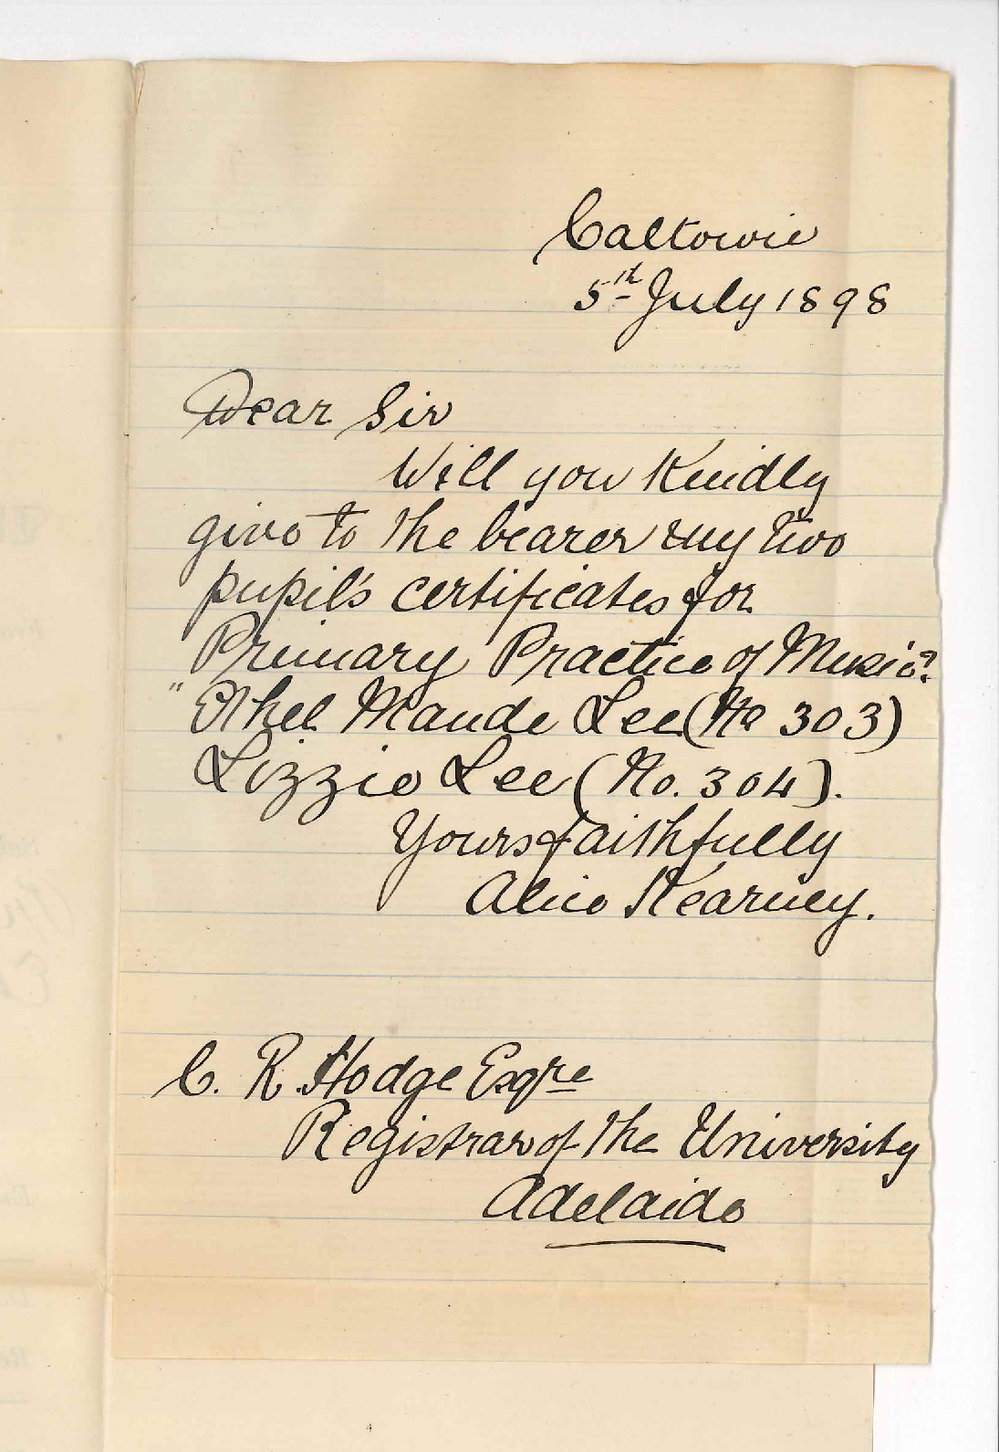 Caltowie
5th July 1898
Dear Sir
Will you Kindly
give to the bearer my two
pupil's certificates for
Primary Practice of Music?
" Ethel Maude Lee (No 303)
Lizzie Lee (No. 304).
Yours faithfully
Alice Kearney.
C. R. Hodge Esqre
Registrar of the University
Adelaide